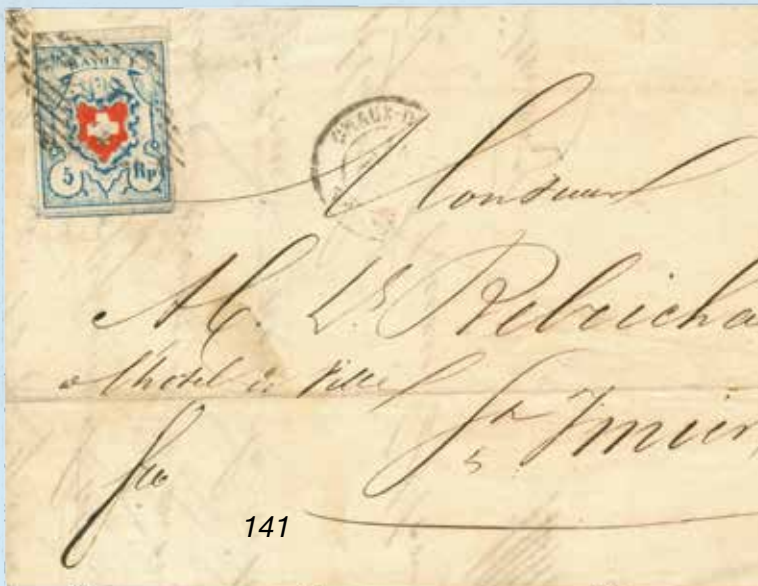 RAYON I
5 Rp
CHAUX-D
Monsieur
à l'hotel de Ville
St Imier
fco
141